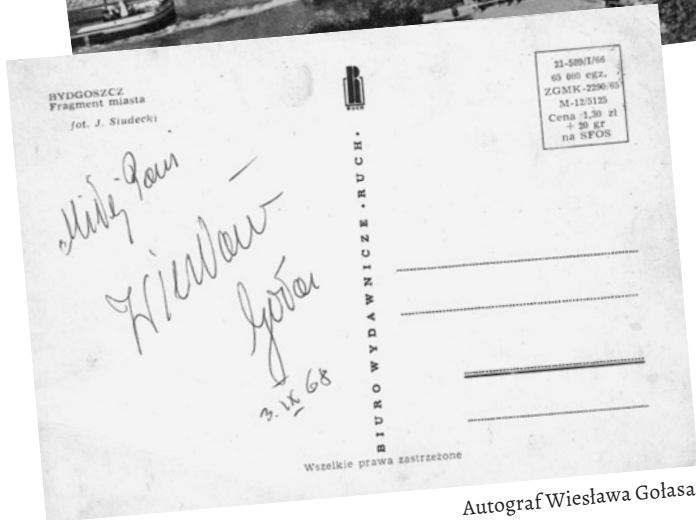 BYDGOSZCZ
Fragment miasta
fot. J. Siudecki
Miłej Pani
Wiesław
Gołas
3.IX 68
RUCH
BIURO WYDAWNICZE • RUCH •
21-509/I/66
65 000 egz.
ZGMK-2290/65
M-12/5125
Cena 1,30 zł
+ 20 gr
na SFOS
Wszelkie prawa zastrzeżone
Autograf Wiesława Gołasa